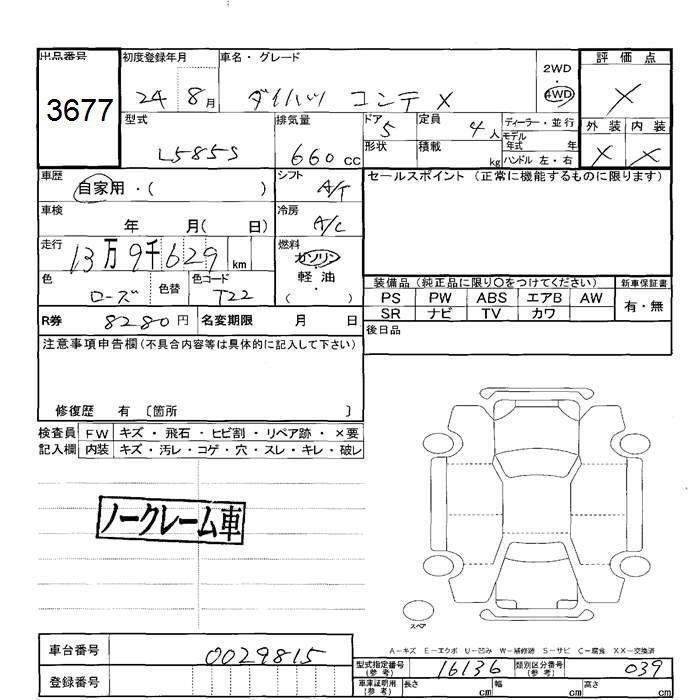 出品番号
3677
初度登録年月
24 8月
車名・グレード
ダイハツ コンテ X
2WD
4WD
評価点
X
外装 内装
X X
型式
L585S
排気量
660cc
ドア
5
形状
定員
4人
積載
kg
ディーラー・並行
モデル年式 年
ハンドル 左・右
車歴
自家用・( )
シフト
A/T
セールスポイント (正常に機能するものに限ります)
車検
年 月( 日)
冷房
A/C
走行
13万9千629km
燃料
ガソリン
軽油
( )
色
ローズ
色替
色コード
T22
装備品 (純正品に限り○をつけてください)
新車保証書
PS PW ABS エアB AW
有・無
SR ナビ TV カワ
R券
8280円
名変期限 月 日
後日品
注意事項申告欄(不具合内容等は具体的に記入して下さい)
修復歴 有 〔箇所 〕
検査員記入欄
FW キズ・飛石・ヒビ割・リペア跡・×要
内装 キズ・汚レ・コゲ・穴・スレ・キレ・破レ
ノークレーム車
スペア
A－キズ E－エクボ U－凹み W－補修跡 S－サビ C－腐食 XX－交換済
車台番号
0029815
登録番号
型式指定番号(参考)
16136
類別区分番号(参考)
039
車庫証明用(参考)
長さ cm
幅 cm
高さ cm